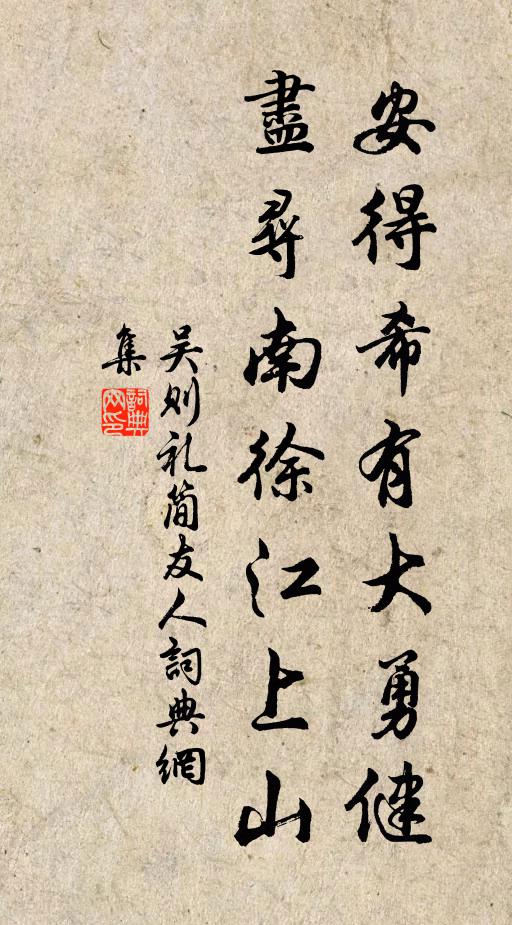 安得希有大勇健
盡尋南徐江上山
吴则礼简友人詞典網
集
詞典
网印